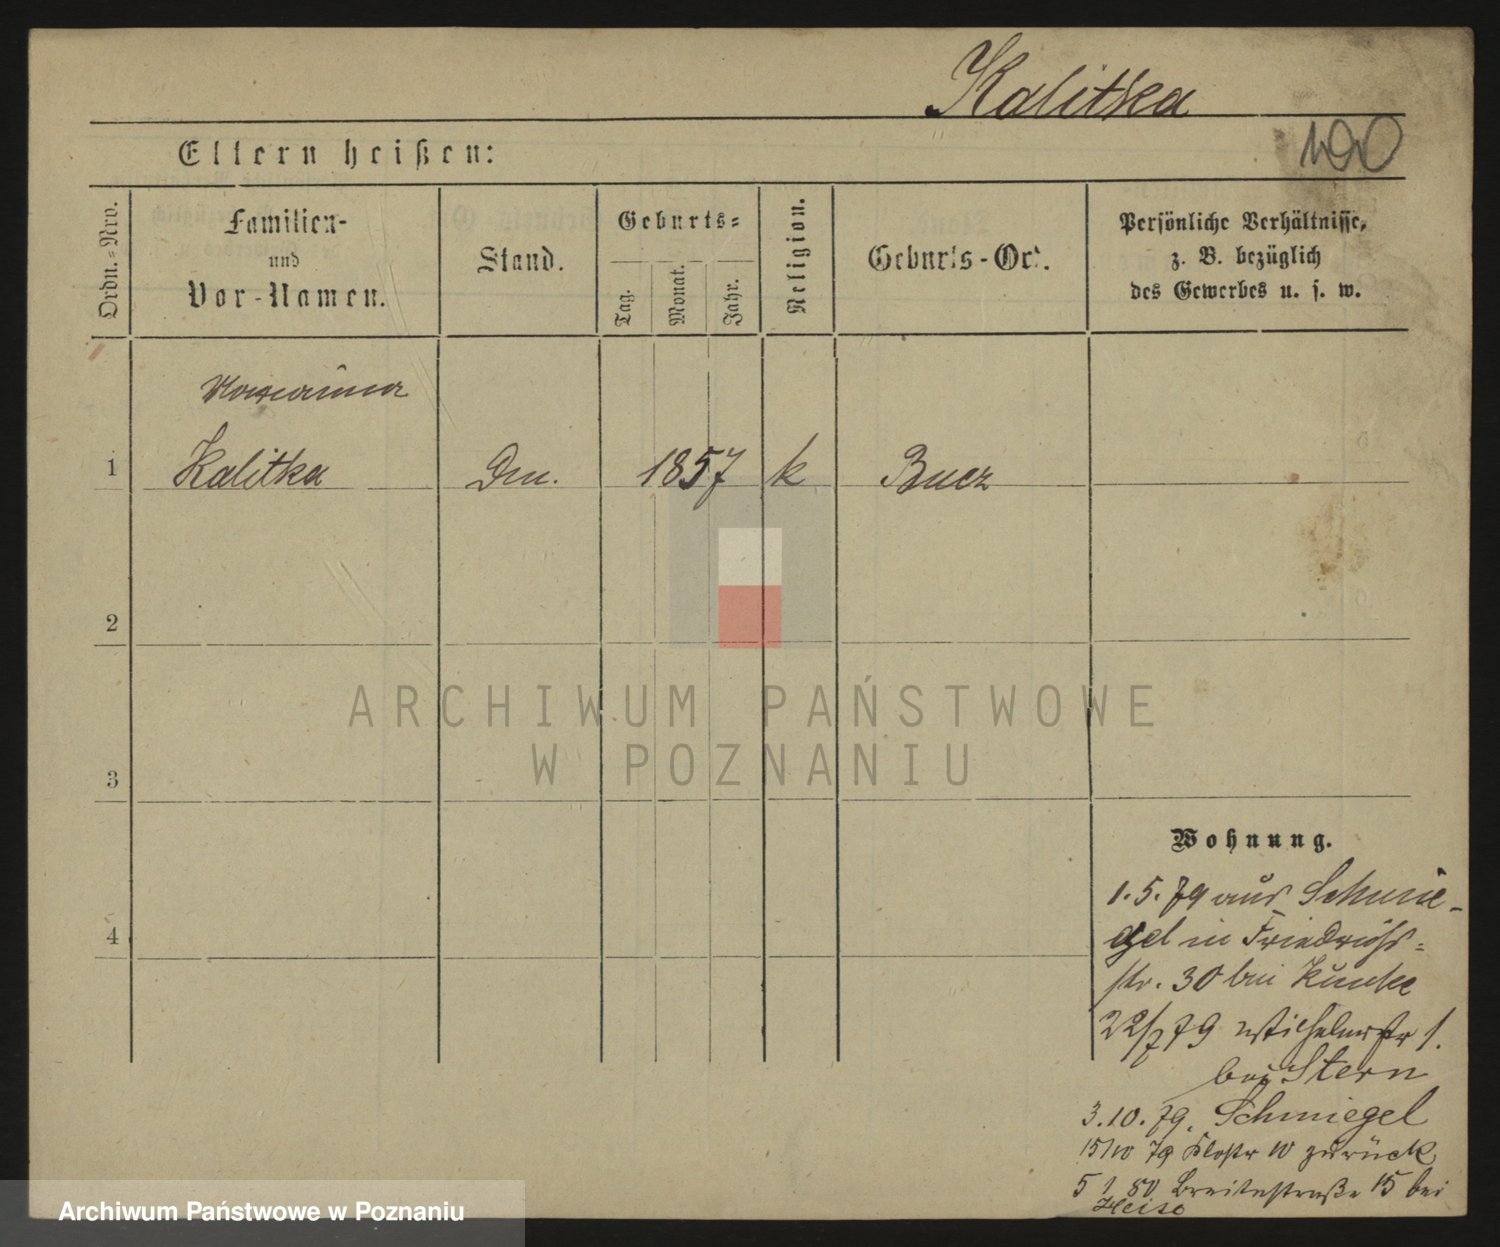 Kalitka
100
Eltern heißen:
Ordn.=Nro.
Familien-
und
Vor-Namen.
Stand.
Geburts=
Tag.
Monat.
Jahr.
Religion.
Geburts-Ort.
Persönliche Verhältnisse,
z. B. bezüglich
des Gewerbes u. s. w.
1
Kalitka
1857
k
Bucz
2
3
4
ARCHIWUM PAŃSTWOWE
W POZNANIU
Wohnung.
1. 5. 79 aus Schmie-
gel in Friedrichs=
str. 30 bei Kunke
22/7 79 Wilhelmstr 1.
bei Stern
3. 10. 79. Schmiegel
15/10 79 Klostr 10 zurück
5 1 80 Breitestraße 15 bei
Archiwum Państwowe w Poznaniu